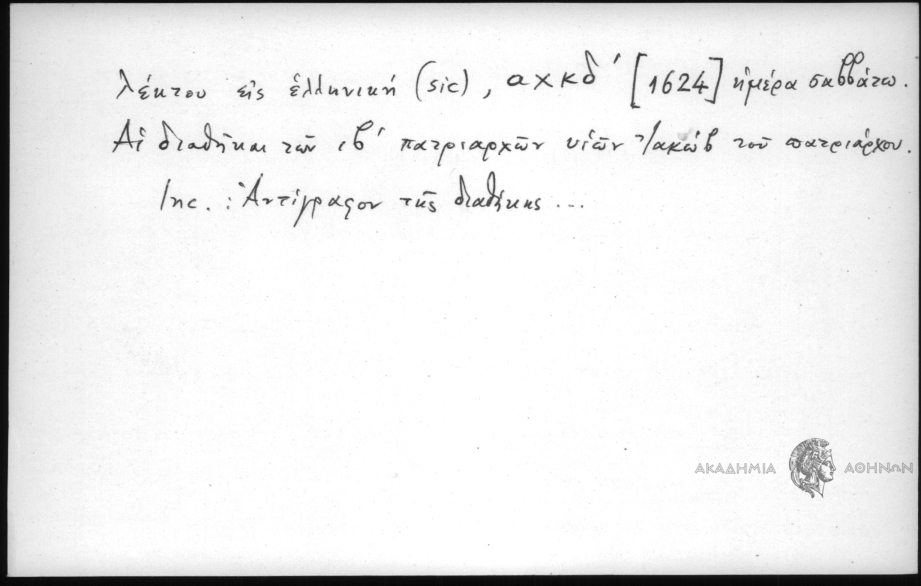 λέκτου εἰς ἑλληνική (sic), αχκδʹ [1624] ἡμέρα σαββάτω.
Αἱ διαθῆκαι τῶν ιβʹ πατριαρχῶν υἱῶν Ἰακώβ τοῦ πατριάρχου.
Inc. : Ἀντίγραφον τῆς διαθήκης ...
ΑΚΑΔΗΜΙΑ ΑΘΗΝΩΝ